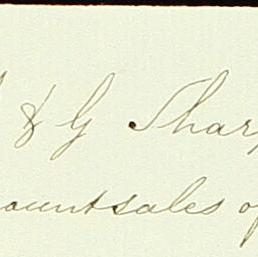 & G Shar
ountsales of